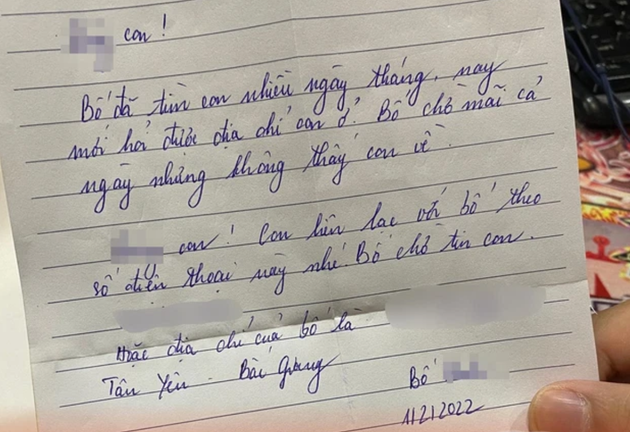 con !
Bố đã tìm con nhiều ngày tháng, nay
mới hỏi được địa chỉ con ở. Bố chờ mãi cả
ngày nhưng không thấy con về.
con ! Con liên lạc với bố theo
số điện thoại này nhé. Bố chờ tin con.
Hoặc địa chỉ của bố là
Tân Yên - Bắc Giang
Bố
1/2/2022